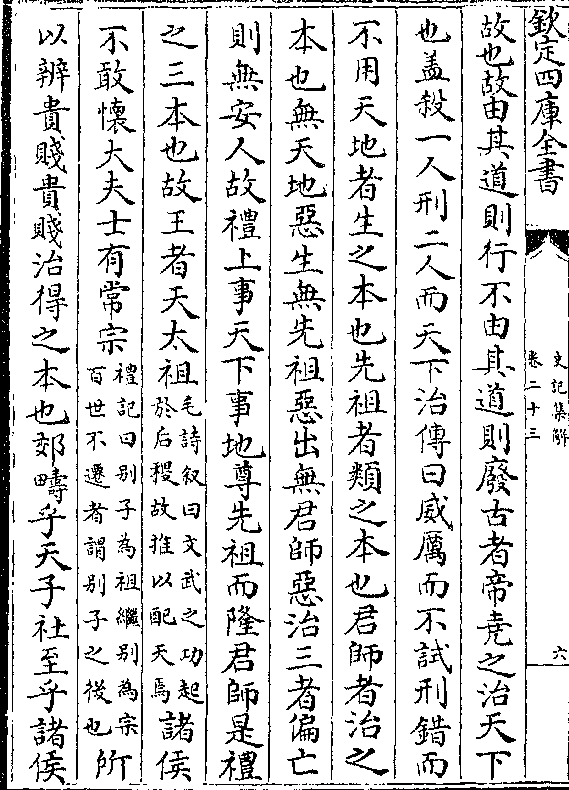 欽定四庫全書
史記集解
卷二十三
六
故也故由其道則行不由其道則廢古者帝堯之治天下
也盖殺一人刑二人而天下治傳曰威厲而不試刑錯而
不用天地者生之本也先祖者類之本也君師者治之
本也無天地惡生無先祖惡出無君師惡治三者偏亡
則無安人故禮上事天下事地尊先祖而隆君師是禮
之三本也故王者天太祖毛詩叙曰文武之功起於后稷故推以配天焉諸侯
不敢懷大夫士有常宗禮記曰别子為祖繼别為宗百世不遷者謂别子之後也所
以辨貴賤貴賤治得之本也郊疇乎天子社至乎諸侯